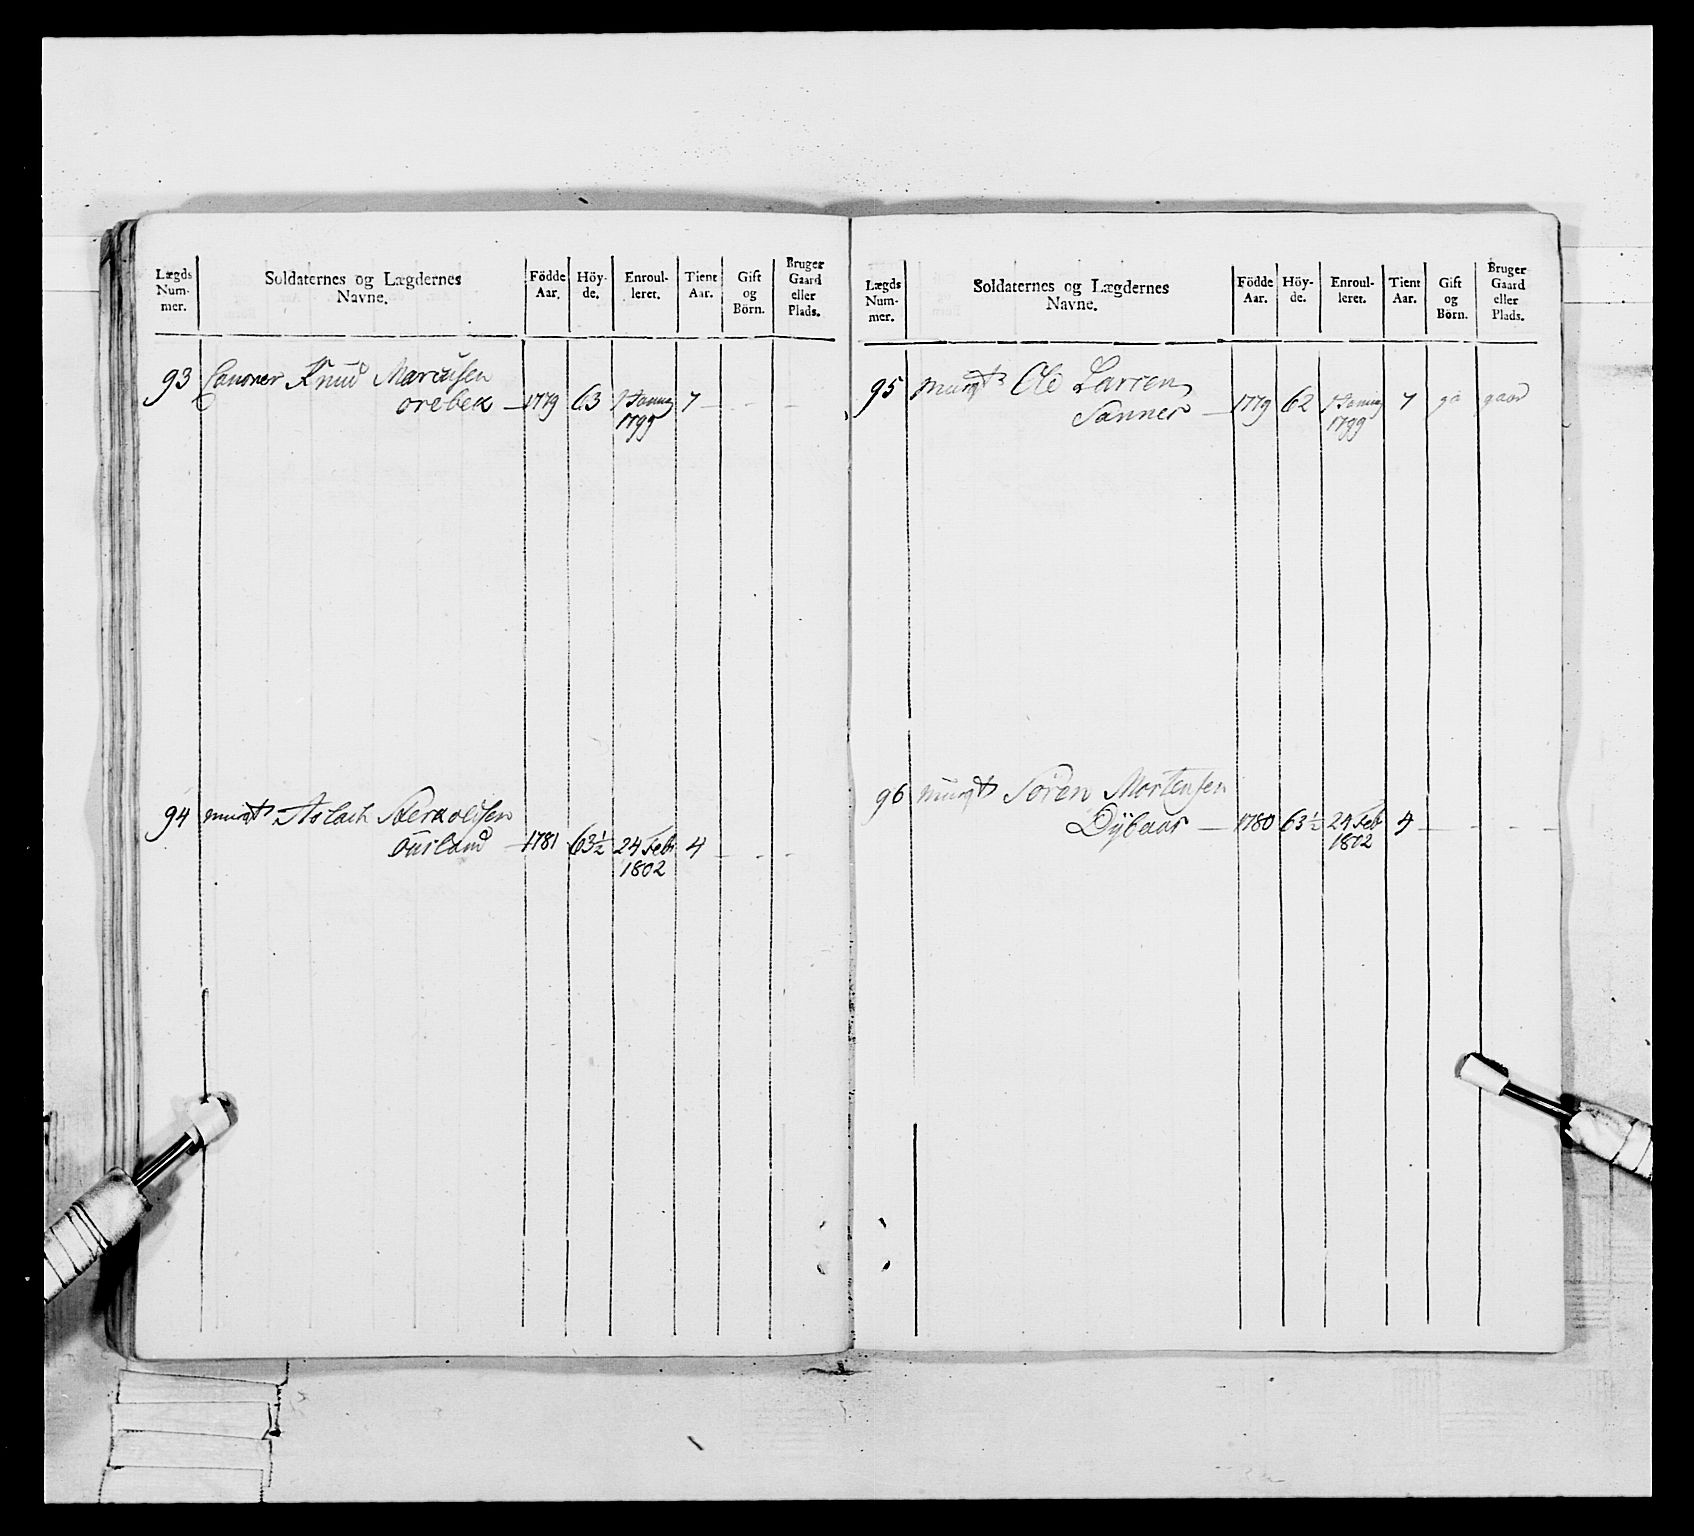 Lægds Num- mer.
Soldaternes og Lægdernes Navne.
Födde Aar.
Höy- de.
Enroul- leret.
Tient Aar.
Gift og Börn.
Bruger Gaard eller Plads.
93 Canoner Knud Marcusen
orebek — 1779 63 1 Janua 7 — — —
1799
94 musqt Aslach
1781 63½ 24 Feb 4 — — —
1802
Lægds Num- mer.
Soldaternes og Lægdernes Navne.
Födde Aar.
Höy- de.
Enroul- leret.
Tient Aar.
Gift og Börn.
Bruger Gaard eller Plads.
95 musqt Ole Larsen
Sannes — 1779 62 1 Janua 7 ja gaard
1799
96 musqt Sören Mortensen
— 1780 63½ 24 Feb 4 — — —
1802